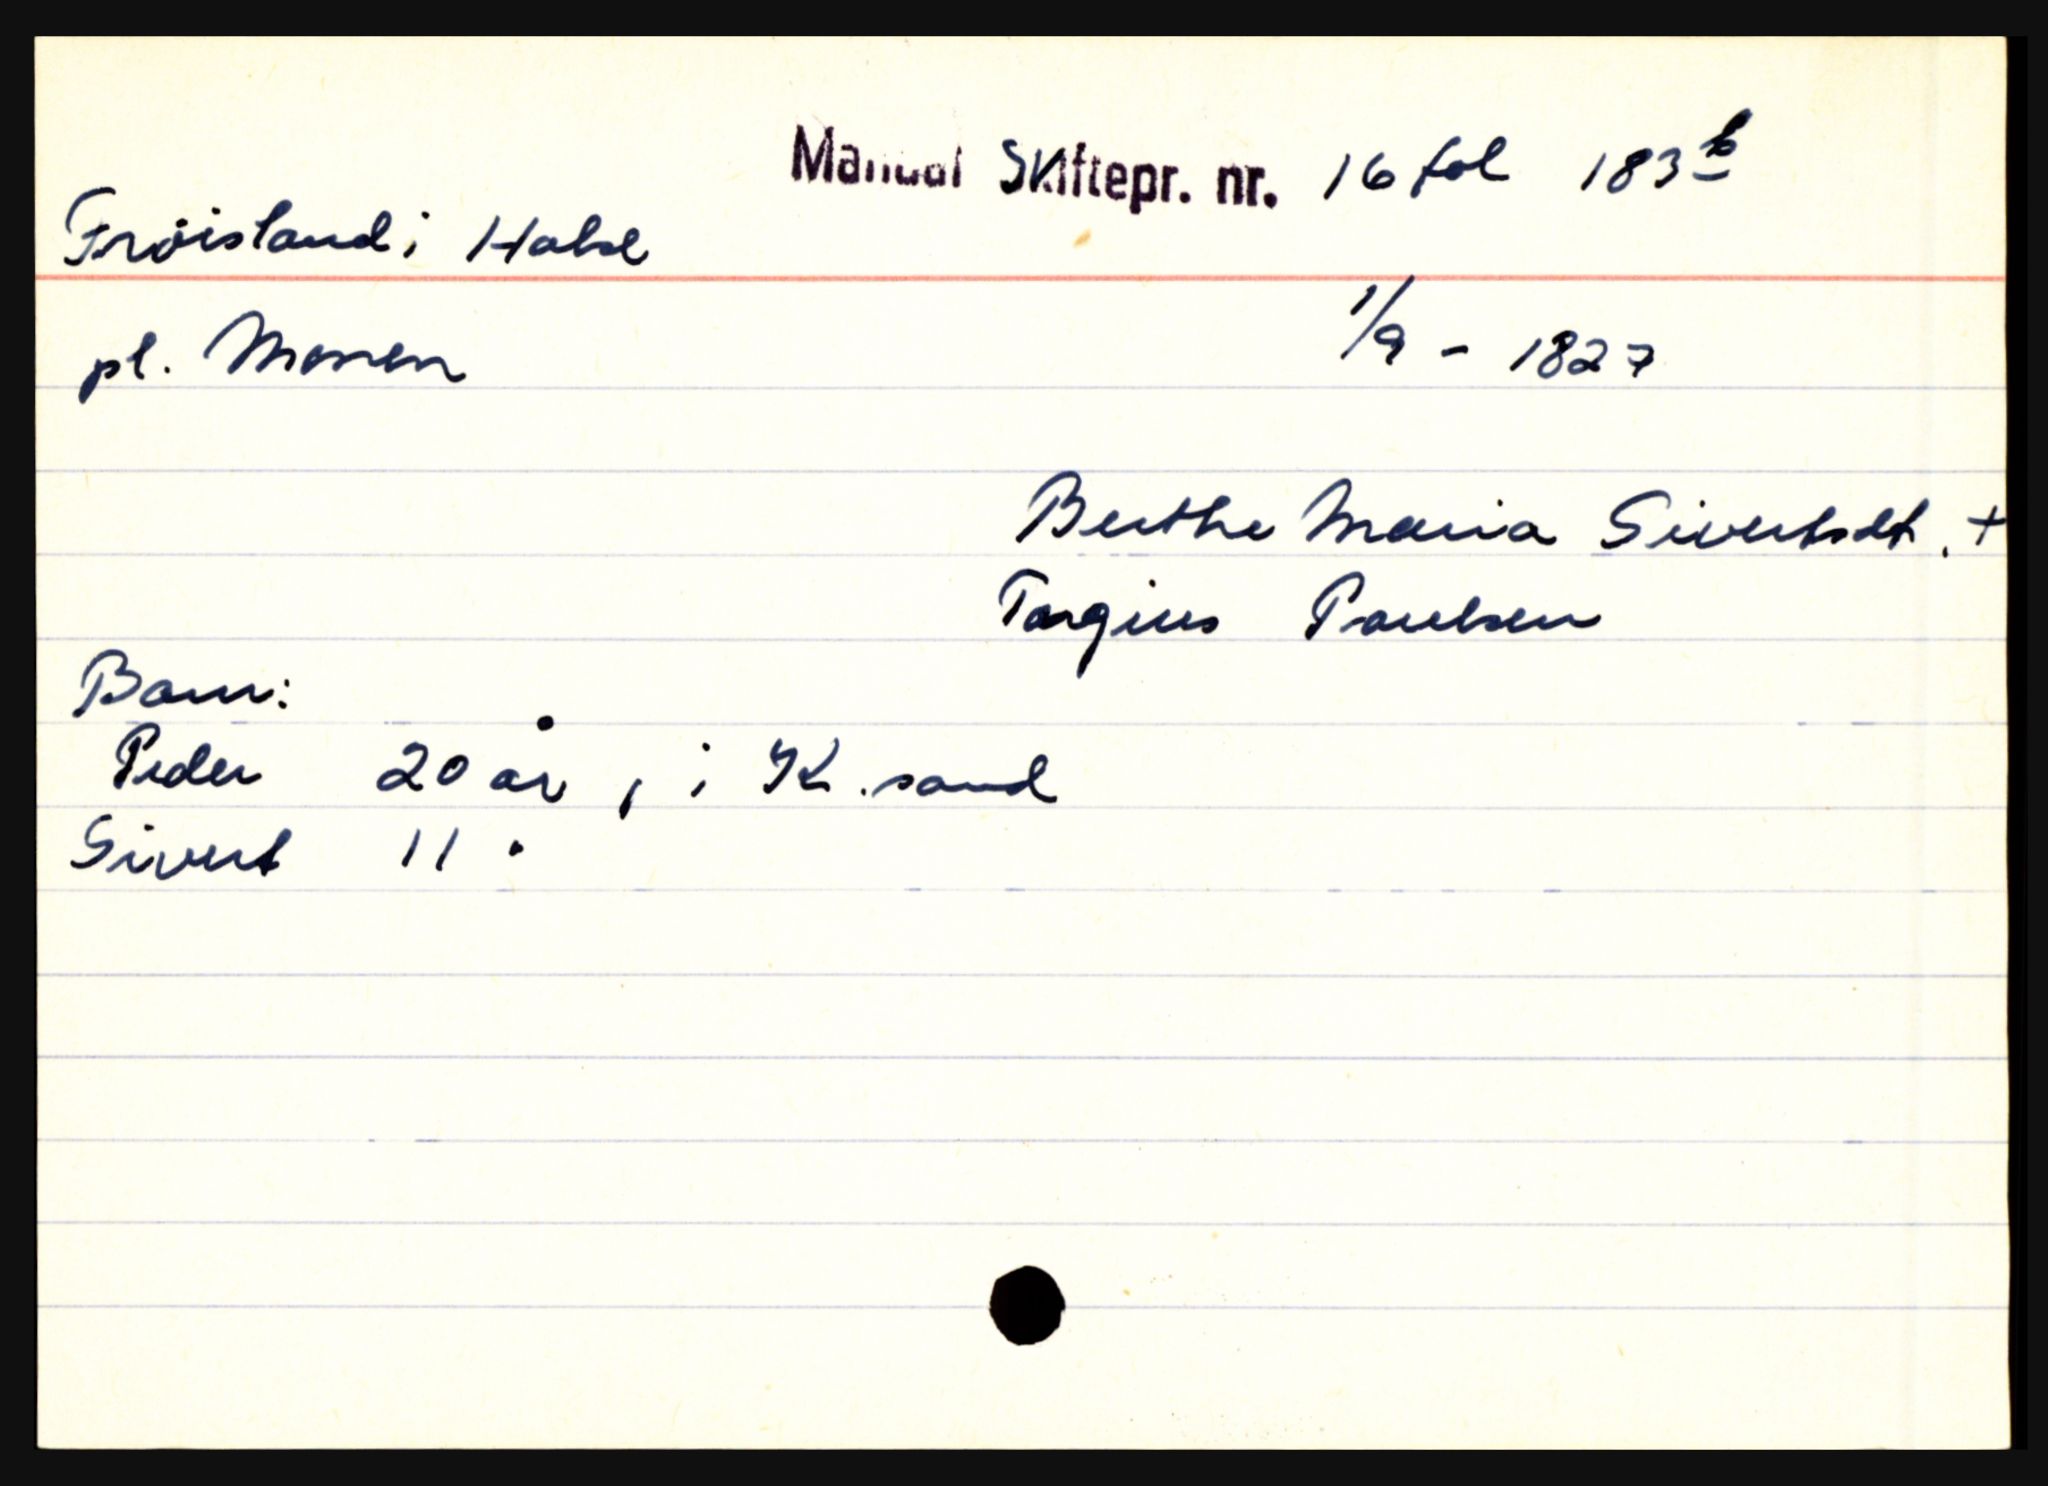 Manual Skiftepr. nr. 16 fol 183 b
Frøisland i Halse
pl. Monen
1/9 - 1827
Berthe Maria Sivertsdt. +
Torgius Paulsen
Barn:
Peder 20 år, i K.sand
Sivert 11 "